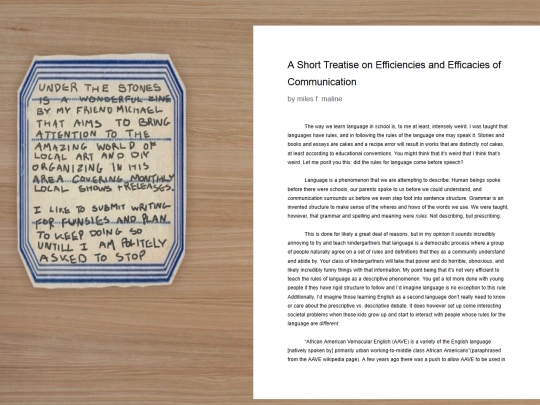 UNDER THE STONES
IS A WONDERFUL ZINE
BY MY FRIEND MICHAEL
THAT AIMS TO BRING
ATTENTION TO THE
AMAZING WORLD OF
LOCAL ART AND DIY
ORGANIZING IN HIS
AREA COVERING MONTHLY
LOCAL SHOWS + RELEASES.
I LIKE TO SUBMIT WRITING
FOR FUNSIES AND PLAN
TO KEEP DOING SO
UNTILL I AM POLITELY
ASKED TO STOP
A Short Treatise on Efficiencies and Efficacies of
Communication
by miles f. maline
The way we learn language in school is, to me at least, intensely weird. I was taught that
languages have rules, and in following the rules of the language one may speak it. Stories and
books and essays are cakes and a recipe error will result in works that are distinctly not cakes,
at least according to educational conventions. You might think that it's weird that I think that's
weird. Let me posit you this: did the rules for language come before speech?
Language is a phenomenon that we are attempting to describe. Human beings spoke
before there were schools, our parents spoke to us before we could understand, and
communication surrounds us before we even step foot into sentence structure. Grammar is an
invented structure to make sense of the wheres and hows of the words we use. We were taught,
however, that grammar and spelling and meaning were rules. Not describing, but prescribing.
This is done for likely a great deal of reasons, but in my opinion it sounds incredibly
annoying to try and teach kindergartners that language is a democratic process where a group
of people naturally agree on a set of rules and definitions that they as a community understand
and abide by. Your class of kindergartners will take that power and do horrible, obnoxious, and
likely incredibly funny things with that information. My point being that it's not very efficient to
teach the rules of language as a descriptive phenomenon. You get a lot more done with young
people if they have rigid structure to follow and I'd imagine language is no exception to this rule.
Additionally, I'd imagine those learning English as a second language don't really need to know
or care about the prescriptive vs. descriptive debate. It does however set up some interesting
societal problems when those kids grow up and start to interact with people whose rules for the
language are different.
"African American Vernacular English (AAVE) is a variety of the English language
[natively spoken by] primarily urban working-to-middle class African Americans"(paraphrased
from the AAVE wikipedia page). A few years ago there was a push to allow AAVE to be used in